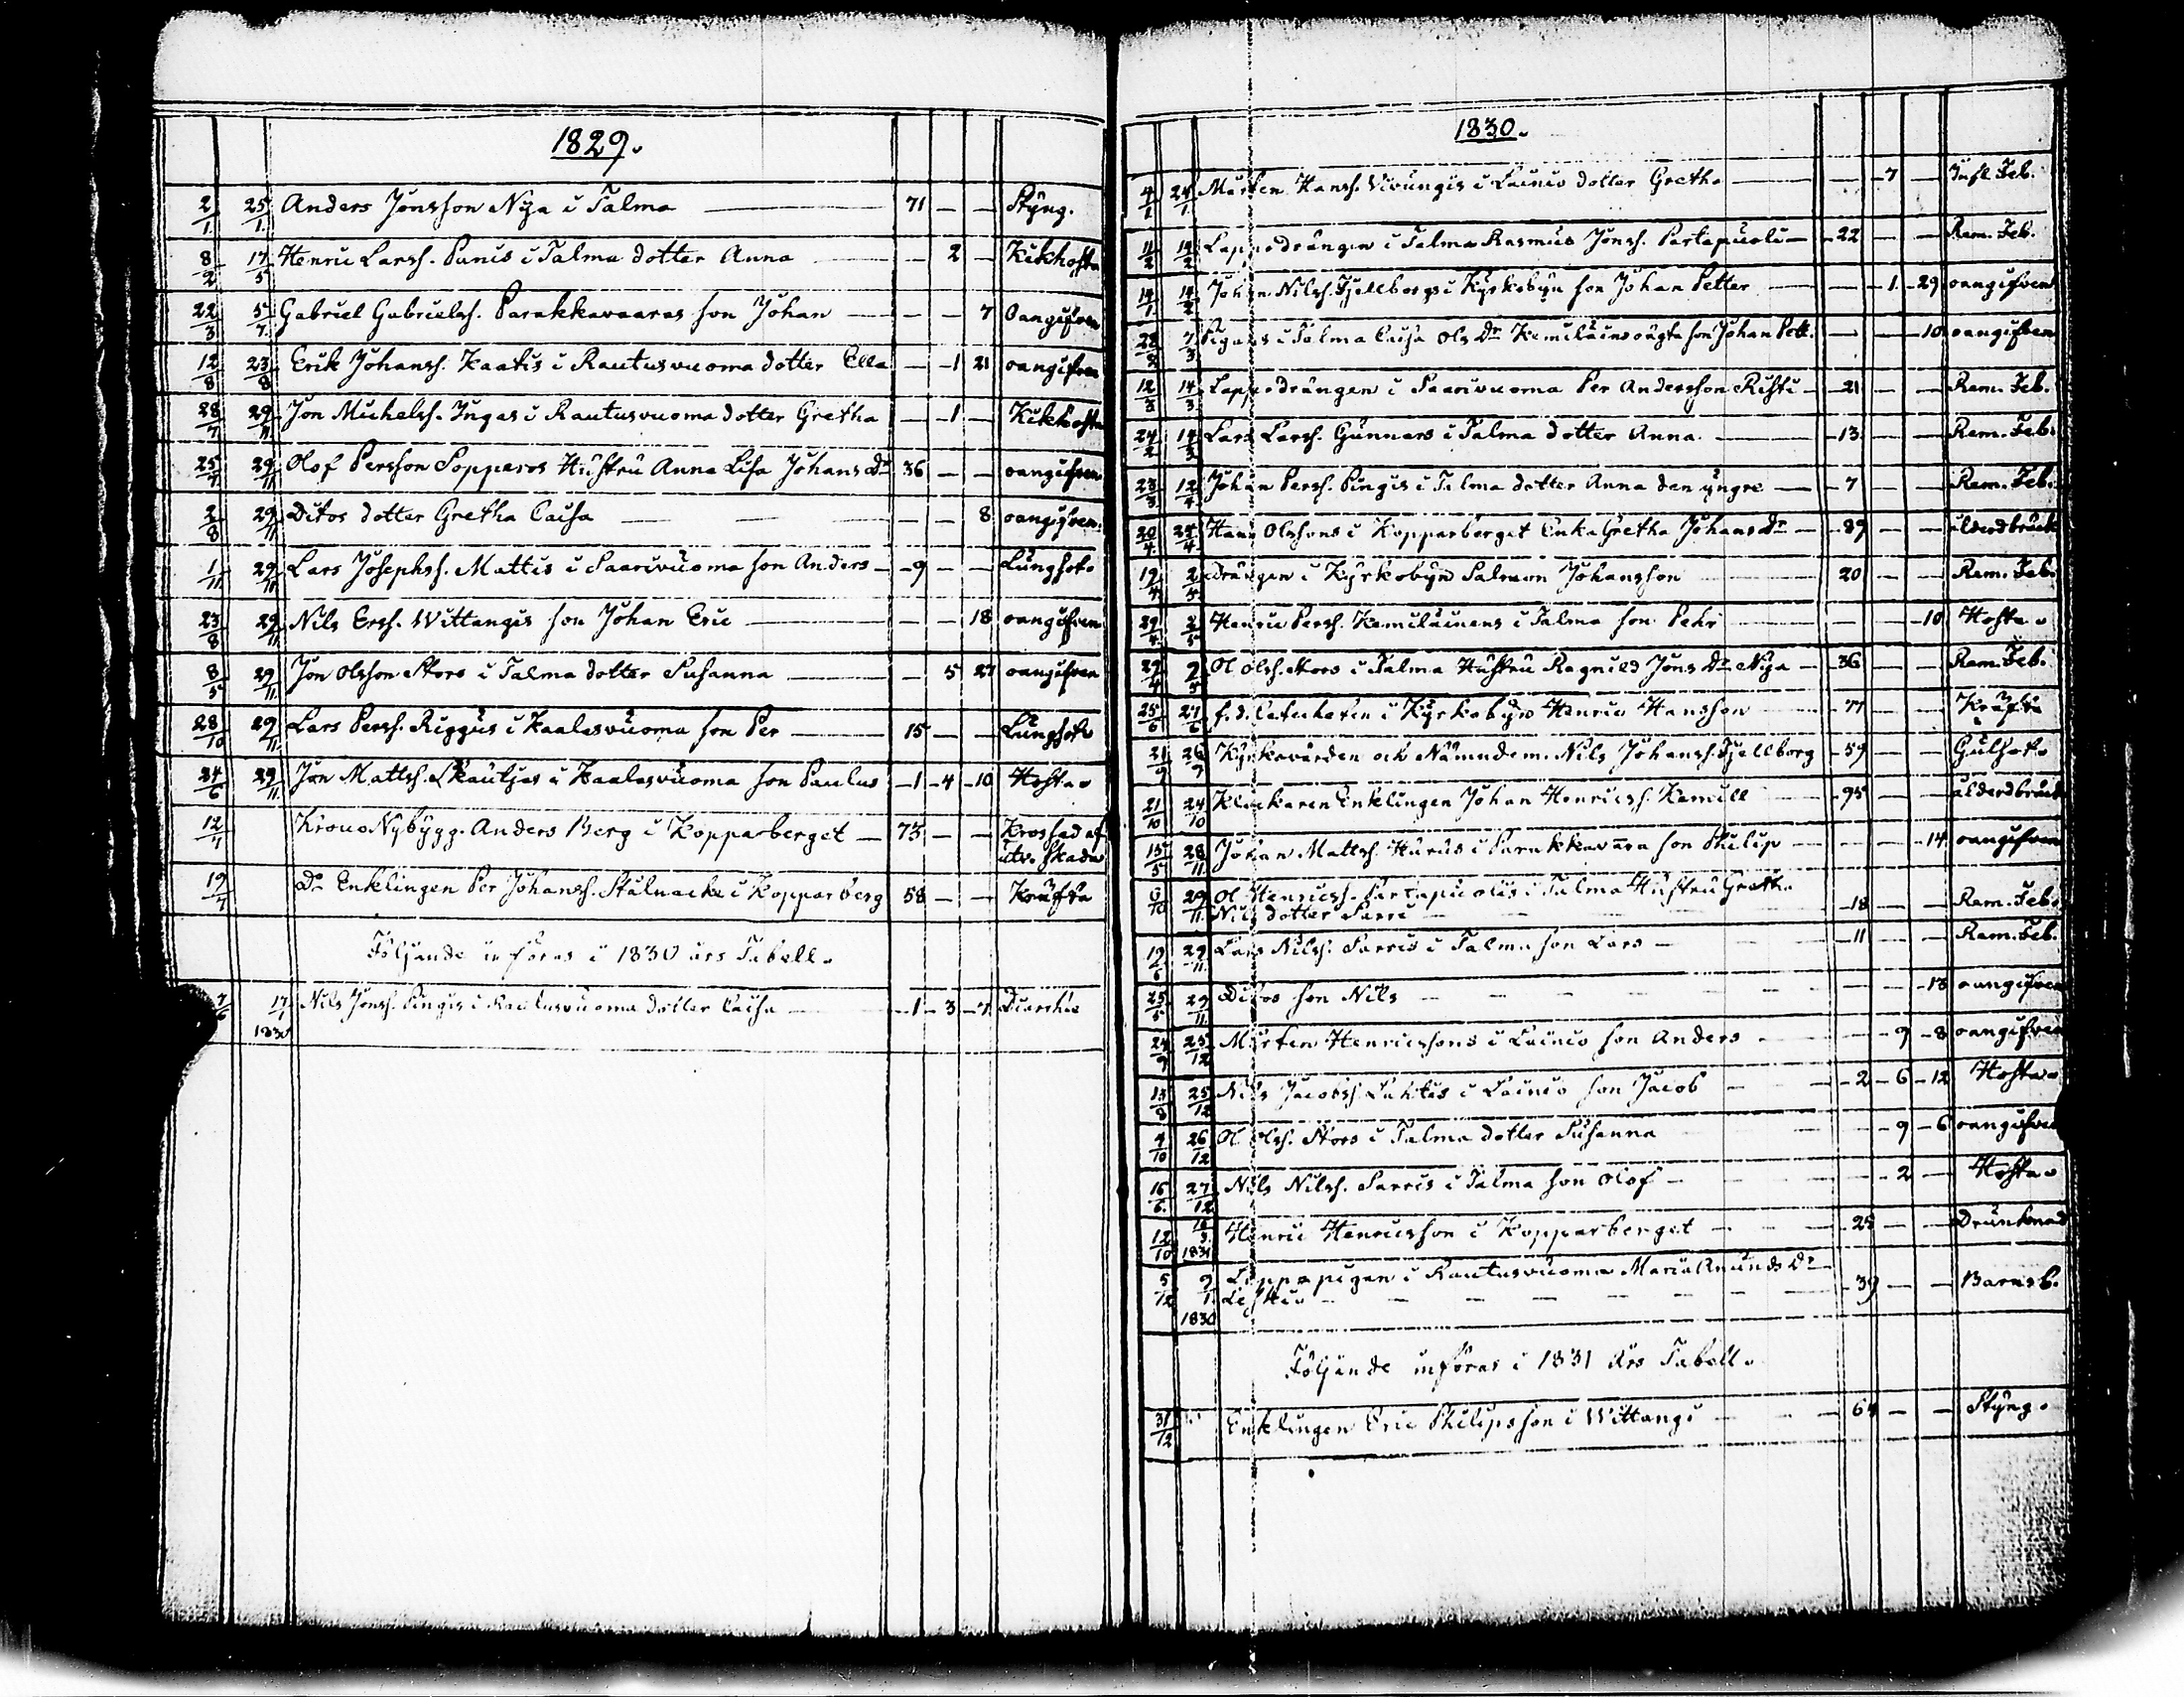 1829.
2/1 25/1 Anders Jonsson Nya i Talma — 71 — — Styng.
8/2 17/5 Henric Larss. Panis i Talma dotter Anna — — 2 — Kikhosta
22/3 5/7 Gabriel Gabrielss. Parakkavaaras son Johan — — — 7 Oangifven
12/8 23/8 Erik Johanss. Kaatis i Rautusvuoma dotter Ella — 1 21 oangifven
28/7 29/11 Jon Michelss. Ingas i Rautusvuoma dotter Gretha — 1 — Kikhosta
25/7 29/11 Olof Persson Sopperos Hustru Anna Lisa Johans Dr 36 — — oangifven
2/8 29/11 Ditos dotter Gretha Caisa — — — 8 oangifven.
1/11 29/11 Lars Josephss. Mattis i Saarivuoma son Anders — 9 — — Lungsot.
23/8 29/11 Nils Erss. Wittangis son Johan Eric — — — 18 oangifven
8/5 29/11 Jon Olsson Stors i Talma dotter Susanna — — 5 27 oangifven
28/10 29/11 Lars Perss. Riggus i Kaalasvuoma son Per — 15 — — Lungsot
24/6 29/11 Jon Mattss. Skautjas i Kaalasvuoma son Paulus — 1 — 4 — 10 Hosta.
12/7 Krono Nybygg. Anders Berg i Kopparberget — 73 — — Krossad af
utv. skada
19/7 Do Enklingen Per Johanss. Stålnacke i Kopparberg 58 — — Kräfta
Följande införas i 1830 års Tabell.
7/6 17/1 Nils Jonss. Pingis i Rautusvuoma dotter Caisa — 1 — 3 — 7 Diarrhée
1830
1830.
4/1 24/1 Mårten Hanss. Vivungis i Lainio dotter Gretha — — 7 — Infl. Feb.
11/2 14/2 Lappedrängen i Talma Rasmus Jonss. Partapuoli — 22 — — Rem. Feb.
14/1 14/2 Johan Nilss. Fjellborgs i Kyrkobyn son Johan Petter — — 1 — 29 oangifven
28/2 7/3 Pigans i Talma Caisa Ols Dr Kemiläins oägta son Johan Pett. — — — 10 oangifven
12/3 14/3 Lappedrängen i Saarivuoma Per Andersson Risti — 21 — — Rem. Feb.
24/2 14/3 Lars Larss. Gunnars i Talma dotter Anna. — 13 — — Rem. Feb.
23/3 12/4 Johan Perss. Pingis i Talma dotter Anna den yngre — 7 — — Rem. Feb.
20/4 25/4 Hans Olssons i Kopparberget Enka Gretha Johans Dr — 89 — — ålderdbräck
19/4 2/5 Drängen i Kyrkobyn Salmon Johansson — 20 — — Rem. Feb.
29/4 2/5 Henric Perss. Kemiläinens i Talma son Pehr — — — 10 Hosta.
27/4 9/5 Ol Olss. Stors i Talma Hustru Ragnild Jons Dr Nya — 36 — — Rem. Feb.
25/6 27/6 f.d. Catecheten i Kyrkobyn Henric Hansson — 77 — — Kräfta
21/9 26/9 Kyrkovärden och Nämndem. Nils Johanss. Fjellborg — 59 — — Gulsot.
21/10 24/10 Klockaren Enklingen Johan Henricss. Kemill — 95 — — ålderdbräck
15/5 28/11 Johan Mattss. Hurus i Parakkavara son Philip — — — 14 oangifven
6/10 29/11 Ol Henricss. Partapuolis i Talma Hustru Gretha
Nils dotter Sarri — 18 — — Rem. Feb.
19/6 29/11 Lars Nilss. Sarris i Talma son Lars — 11 — — Rem. Feb.
25/5 29/11 Ditos son Nils — — — 18 oangifven
24/9 25/12 Mårten Henricssons i Lainio son Anders — — 9 — 8 oangifven
13/8 25/12 Nils Jacobss. Lahtis i Lainio son Jacob — 2 — 6 — 12 Hosta.
4/10 26/12 Ol Olss. Stors i Talma dotter Susanna — — 9 — 6 oangifven
16/6 27/12 Nils Nilss. Sarris i Talma son Olof — — 2 — Hosta.
12/10 1831 Henric Henricsson i Kopparberget — 25 — — Drunknad
5/12 9/1 Lappepigan i Rautusvuoma Maria Amunds Dr
1830 — 39 — — Barnsb.
Följande införas i 1831 års Tabell.
31/12 Enklingen Eric Philipsson i Wittangi — 64 — — Styng.